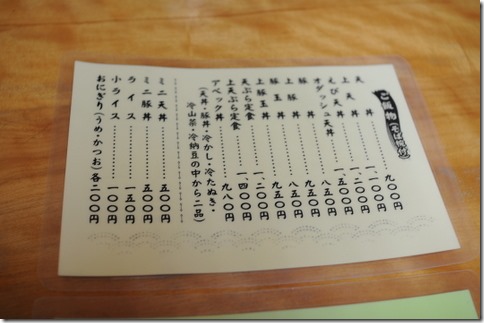 ご飯物
天丼 九〇〇円
上天丼
えび天丼
オダッシュ天丼 一、五〇〇円
豚丼 八五〇円
上豚丼
豚玉丼 九五〇円
上豚玉丼
天ぷら定食 一、二〇〇円
上天ぷら定食 一、四〇〇円
アベック丼 九八〇円
(天丼・豚丼・冷かし・冷たぬき・
冷山菜・冷納豆の中から二品)
ミニ天丼 五〇〇円
ミニ豚丼 五〇〇円
ライス 一五〇円
小ライス 一〇〇円
おにぎり(うめ・かつお)各二〇〇円